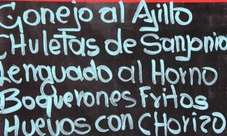 Conejo al Ajillo
Chuletas de Sanjonia
Lenguado al Horno
Boquerones Fritos
Huevos con Chorizo